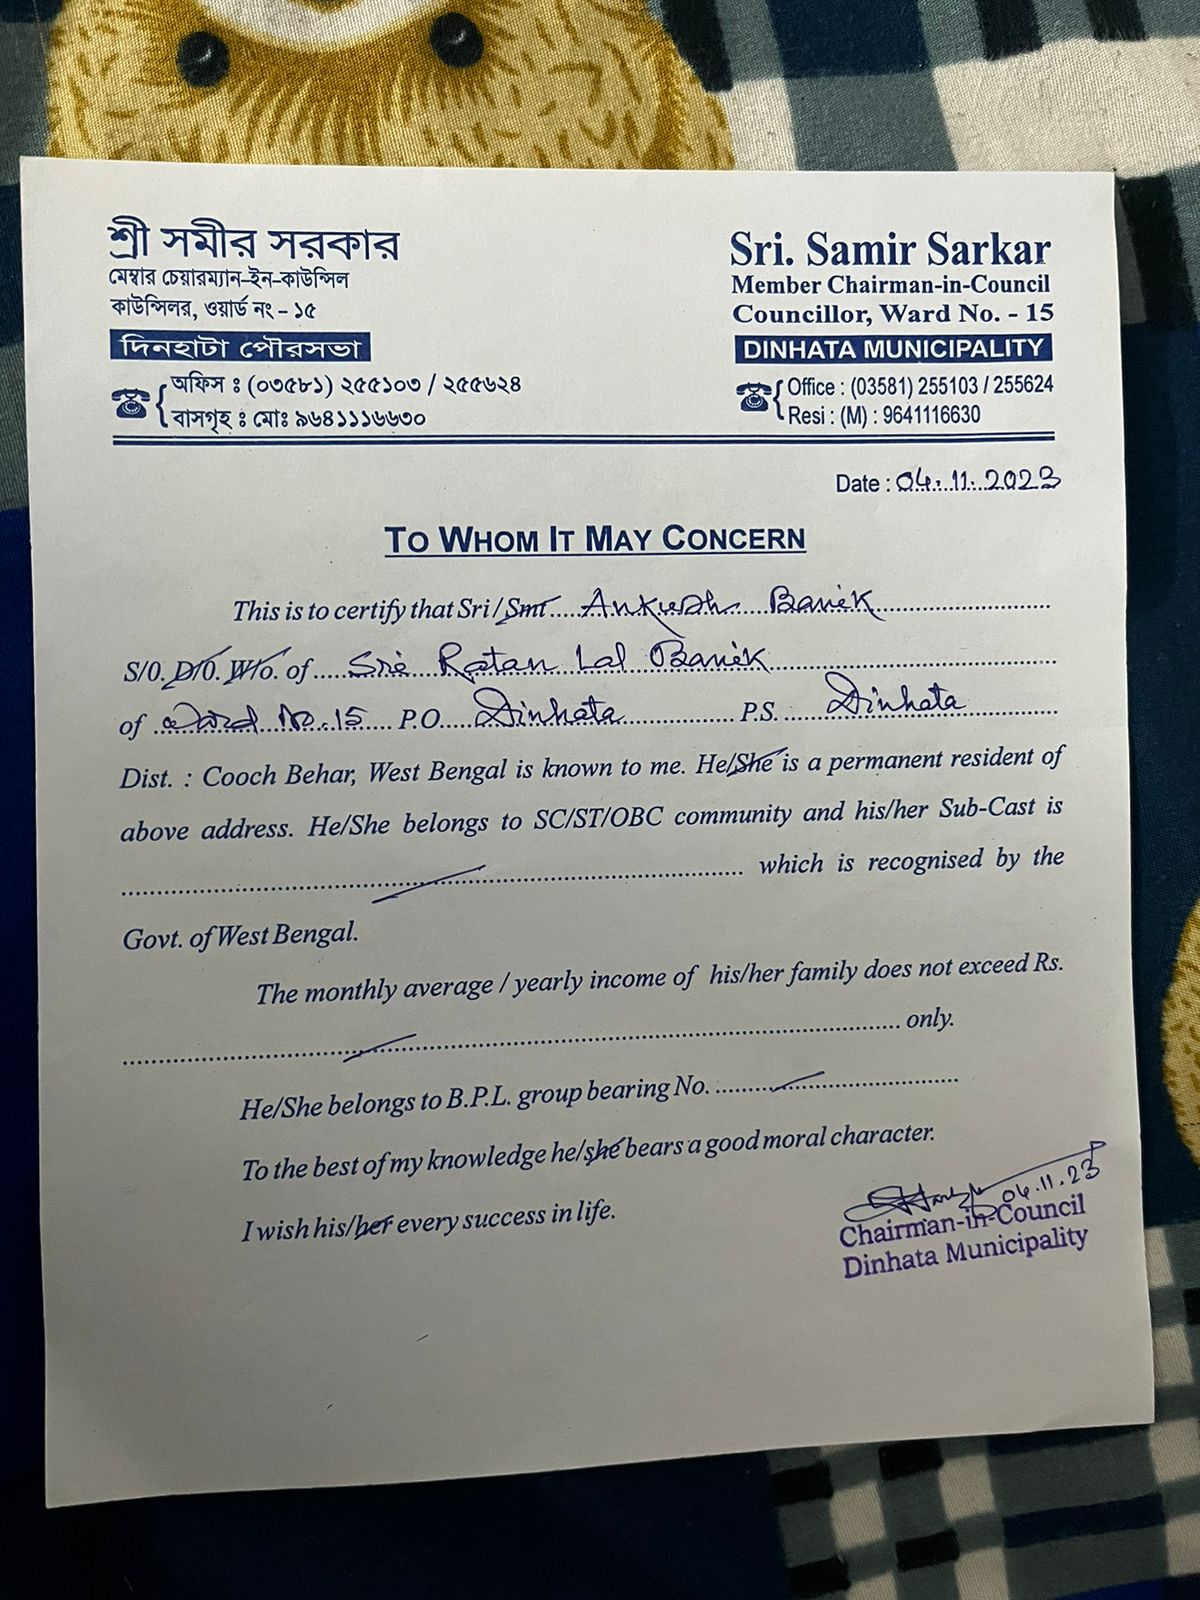 শ্রী সমীর সরকার
মেম্বার চেয়ারম্যান-ইন-কাউন্সিল
কাউন্সিলর, ওয়ার্ড নং - ১৫
দিনহাটা পৌরসভা
অফিস ঃ (০৩৫৮১) ২৫৫১০৩ / ২৫৫৬২৪
বাসগৃহ ঃ মোঃ ৯৬৪১১১৬৬৩০
Sri. Samir Sarkar
Member Chairman-in-Council
Councillor, Ward No. - 15
DINHATA MUNICIPALITY
Office : (03581) 255103 / 255624
Resi : (M) : 9641116630
Date : 04.11.2023
TO WHOM IT MAY CONCERN
This is to certify that Sri / Smt Ankush Banik
S/O. D/O. W/o. of Sri Ratan Lal Banik
of Ward No. 15 P.O. Dinhata P.S. Dinhata
Dist. : Cooch Behar, West Bengal is known to me. He/She is a permanent resident of
above address. He/She belongs to SC/ST/OBC community and his/her Sub-Cast is
which is recognised by the
Govt. of West Bengal.
The monthly average / yearly income of his/her family does not exceed Rs.
only.
He/She belongs to B.P.L. group bearing No.
To the best of my knowledge he/she bears a good moral character.
I wish his/her every success in life.
04.11.23
Chairman-in-Council
Dinhata Municipality